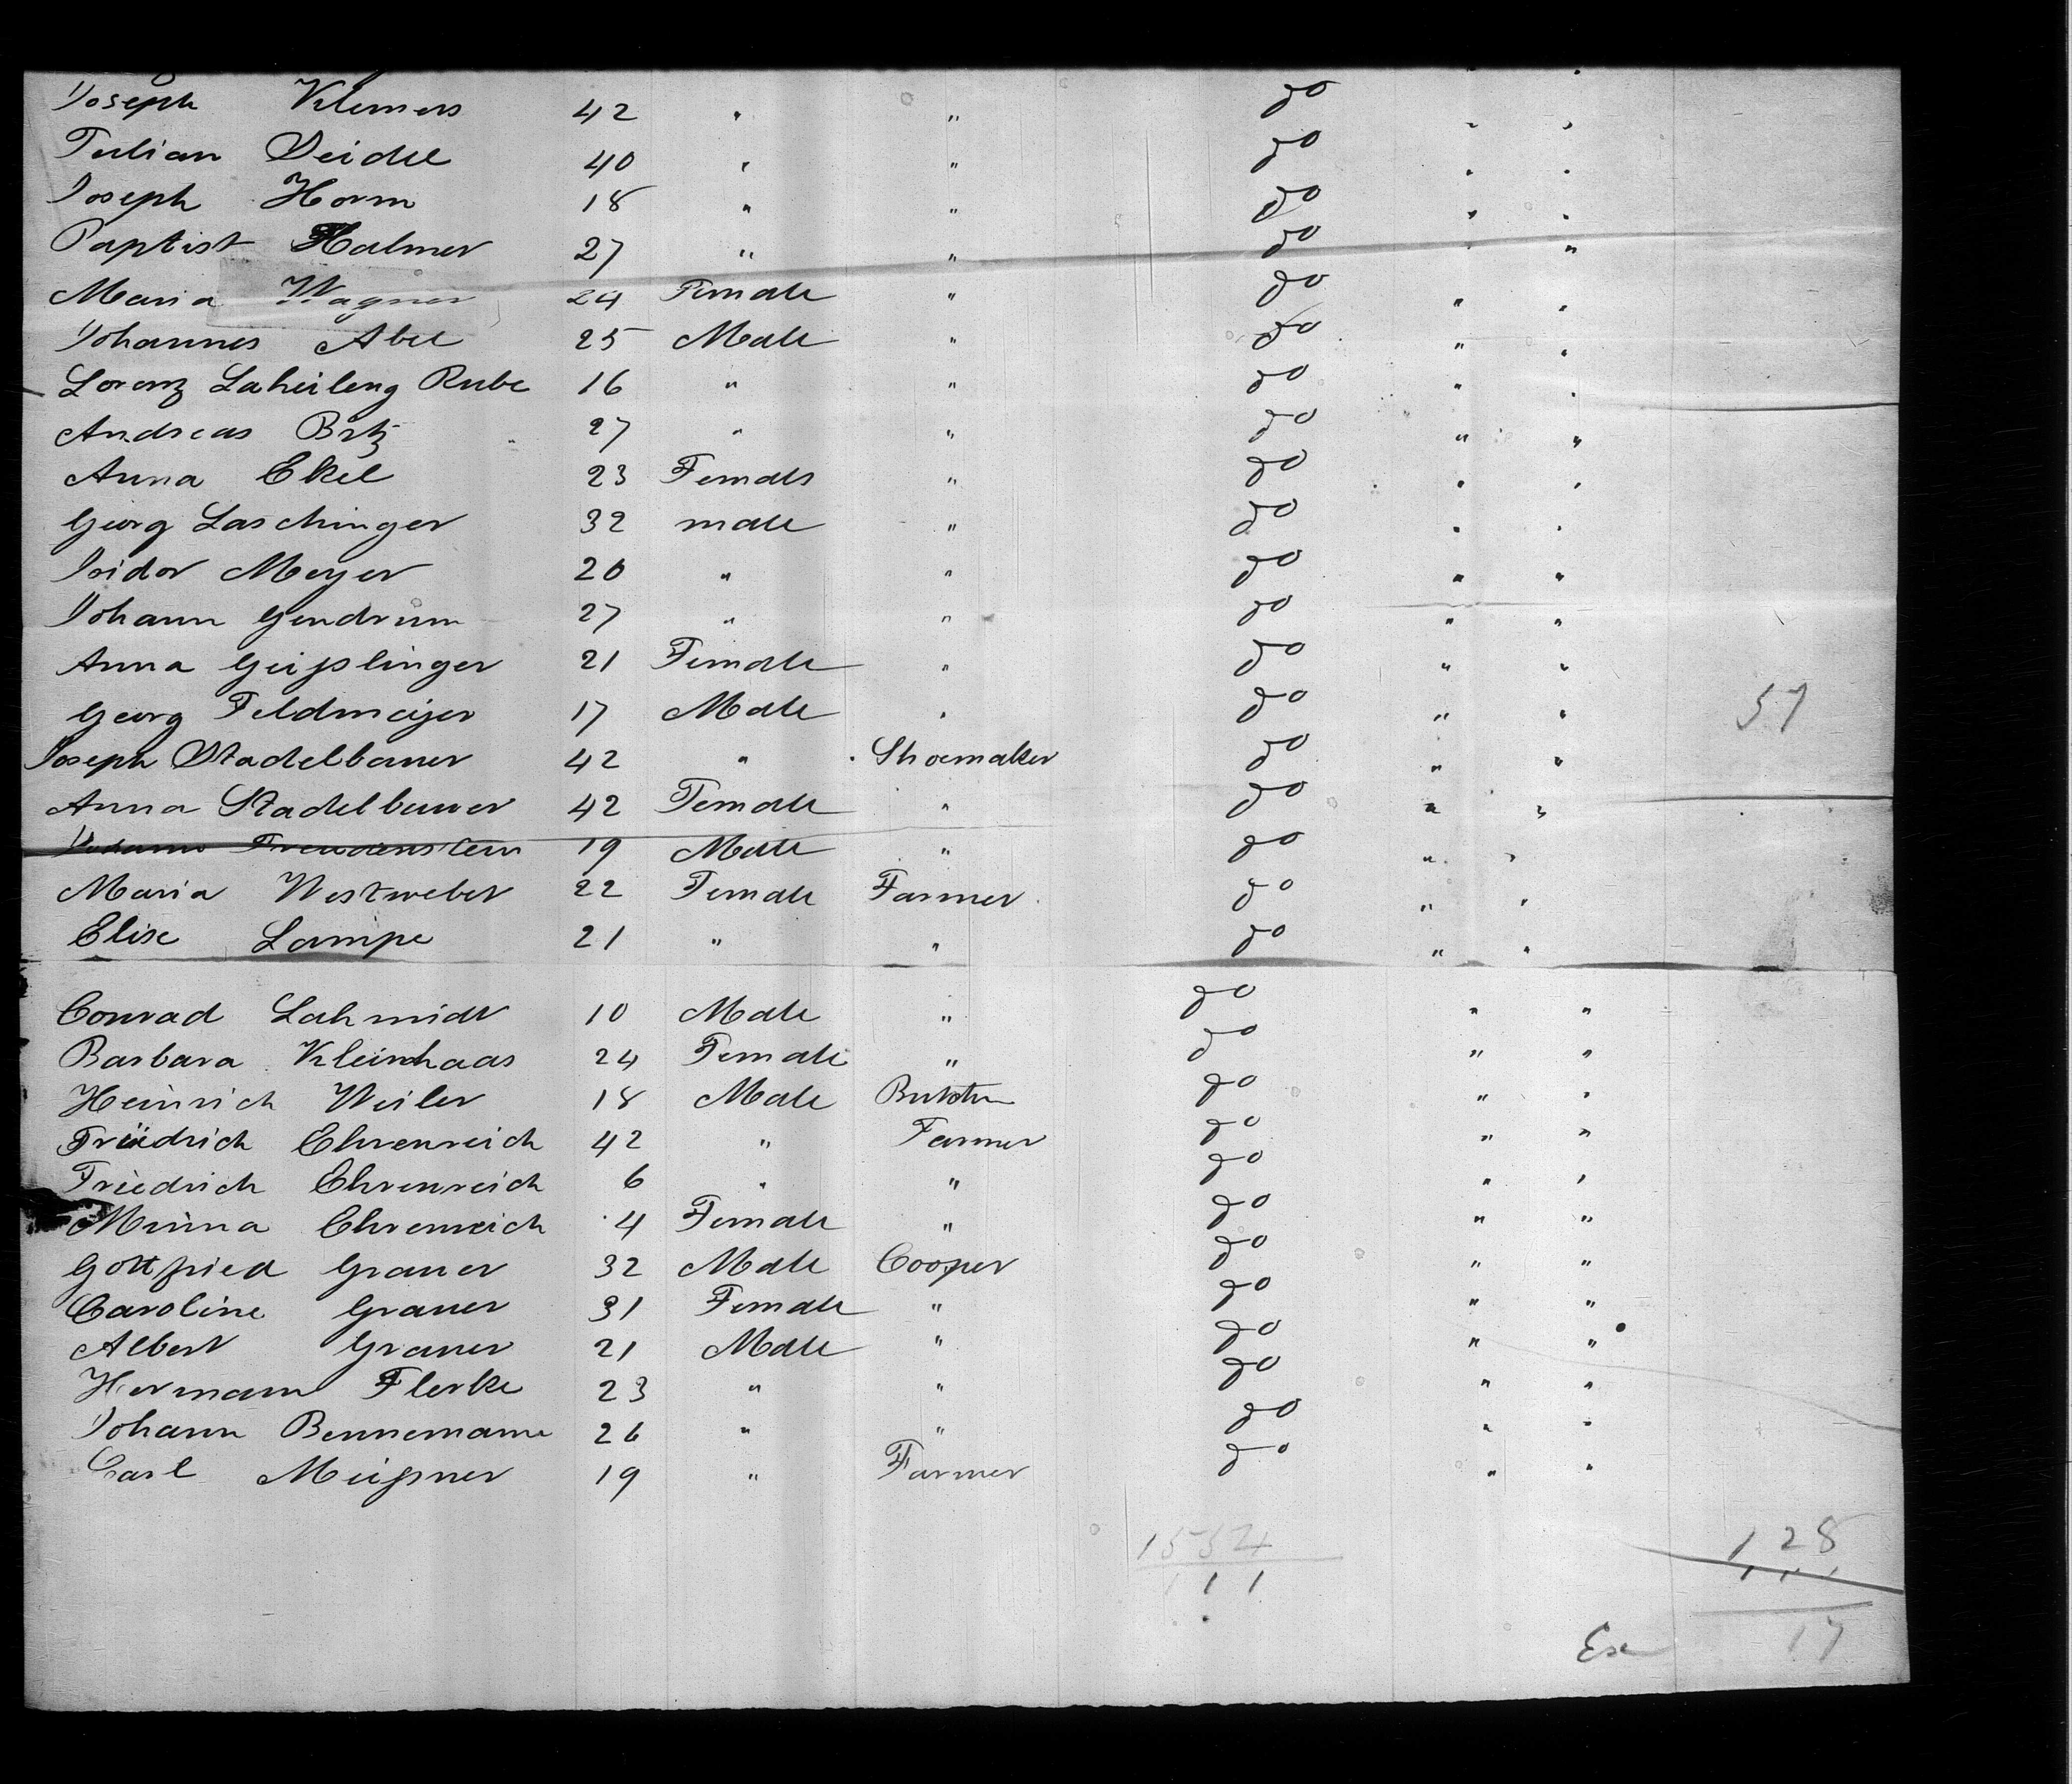 Joseph Klemens 42 " " do " "
Julian Seidel 40 " " do " "
Joseph Horm 18 " " do " "
Baptist Halmer 27 " " do " "
Maria Wagner 24 Female " do " "
Johannes Abel 25 Male " do " "
Lorenz 16 " " do " "
Andreas 27 " " do " "
Anna Ekel 23 Female " do " "
Georg Laschinger 32 male " do " "
Isidor Meyer 20 " " do " "
Johann Gendrum 27 " " do " "
Anna Geißlinger 21 Female " do " "
Georg Feldmeijer 17 Male " do " " 57
Joseph Stadelbauer 42 " Shoemaker do " "
Anna Stadelbauer 42 Female " do " "
Freudenstein 19 Male " do " "
Maria Westweber 22 Female Farmer do " "
Elise Lampe 21 " " do " "
Conrad Lahmidt 10 Male " do " "
Barbara Kleinhaas 24 Female " do " "
Heinrich Weiler 18 Male do " "
Friedrich Ehrenreich 42 " Farmer do " "
Friedrich Ehrenreich 6 " " do " "
Minna Ehrenreich 4 Female " do " "
Gottfried Graner 32 Male Cooper do " "
Caroline Graner 31 Female " do " "
Albert Graner 21 Male " do " "
Hermann Flerke 23 " " do " "
Johann Bennemann 26 " " do " "
Carl Meißner 19 " Farmer do " "
1534 128
111 111
17